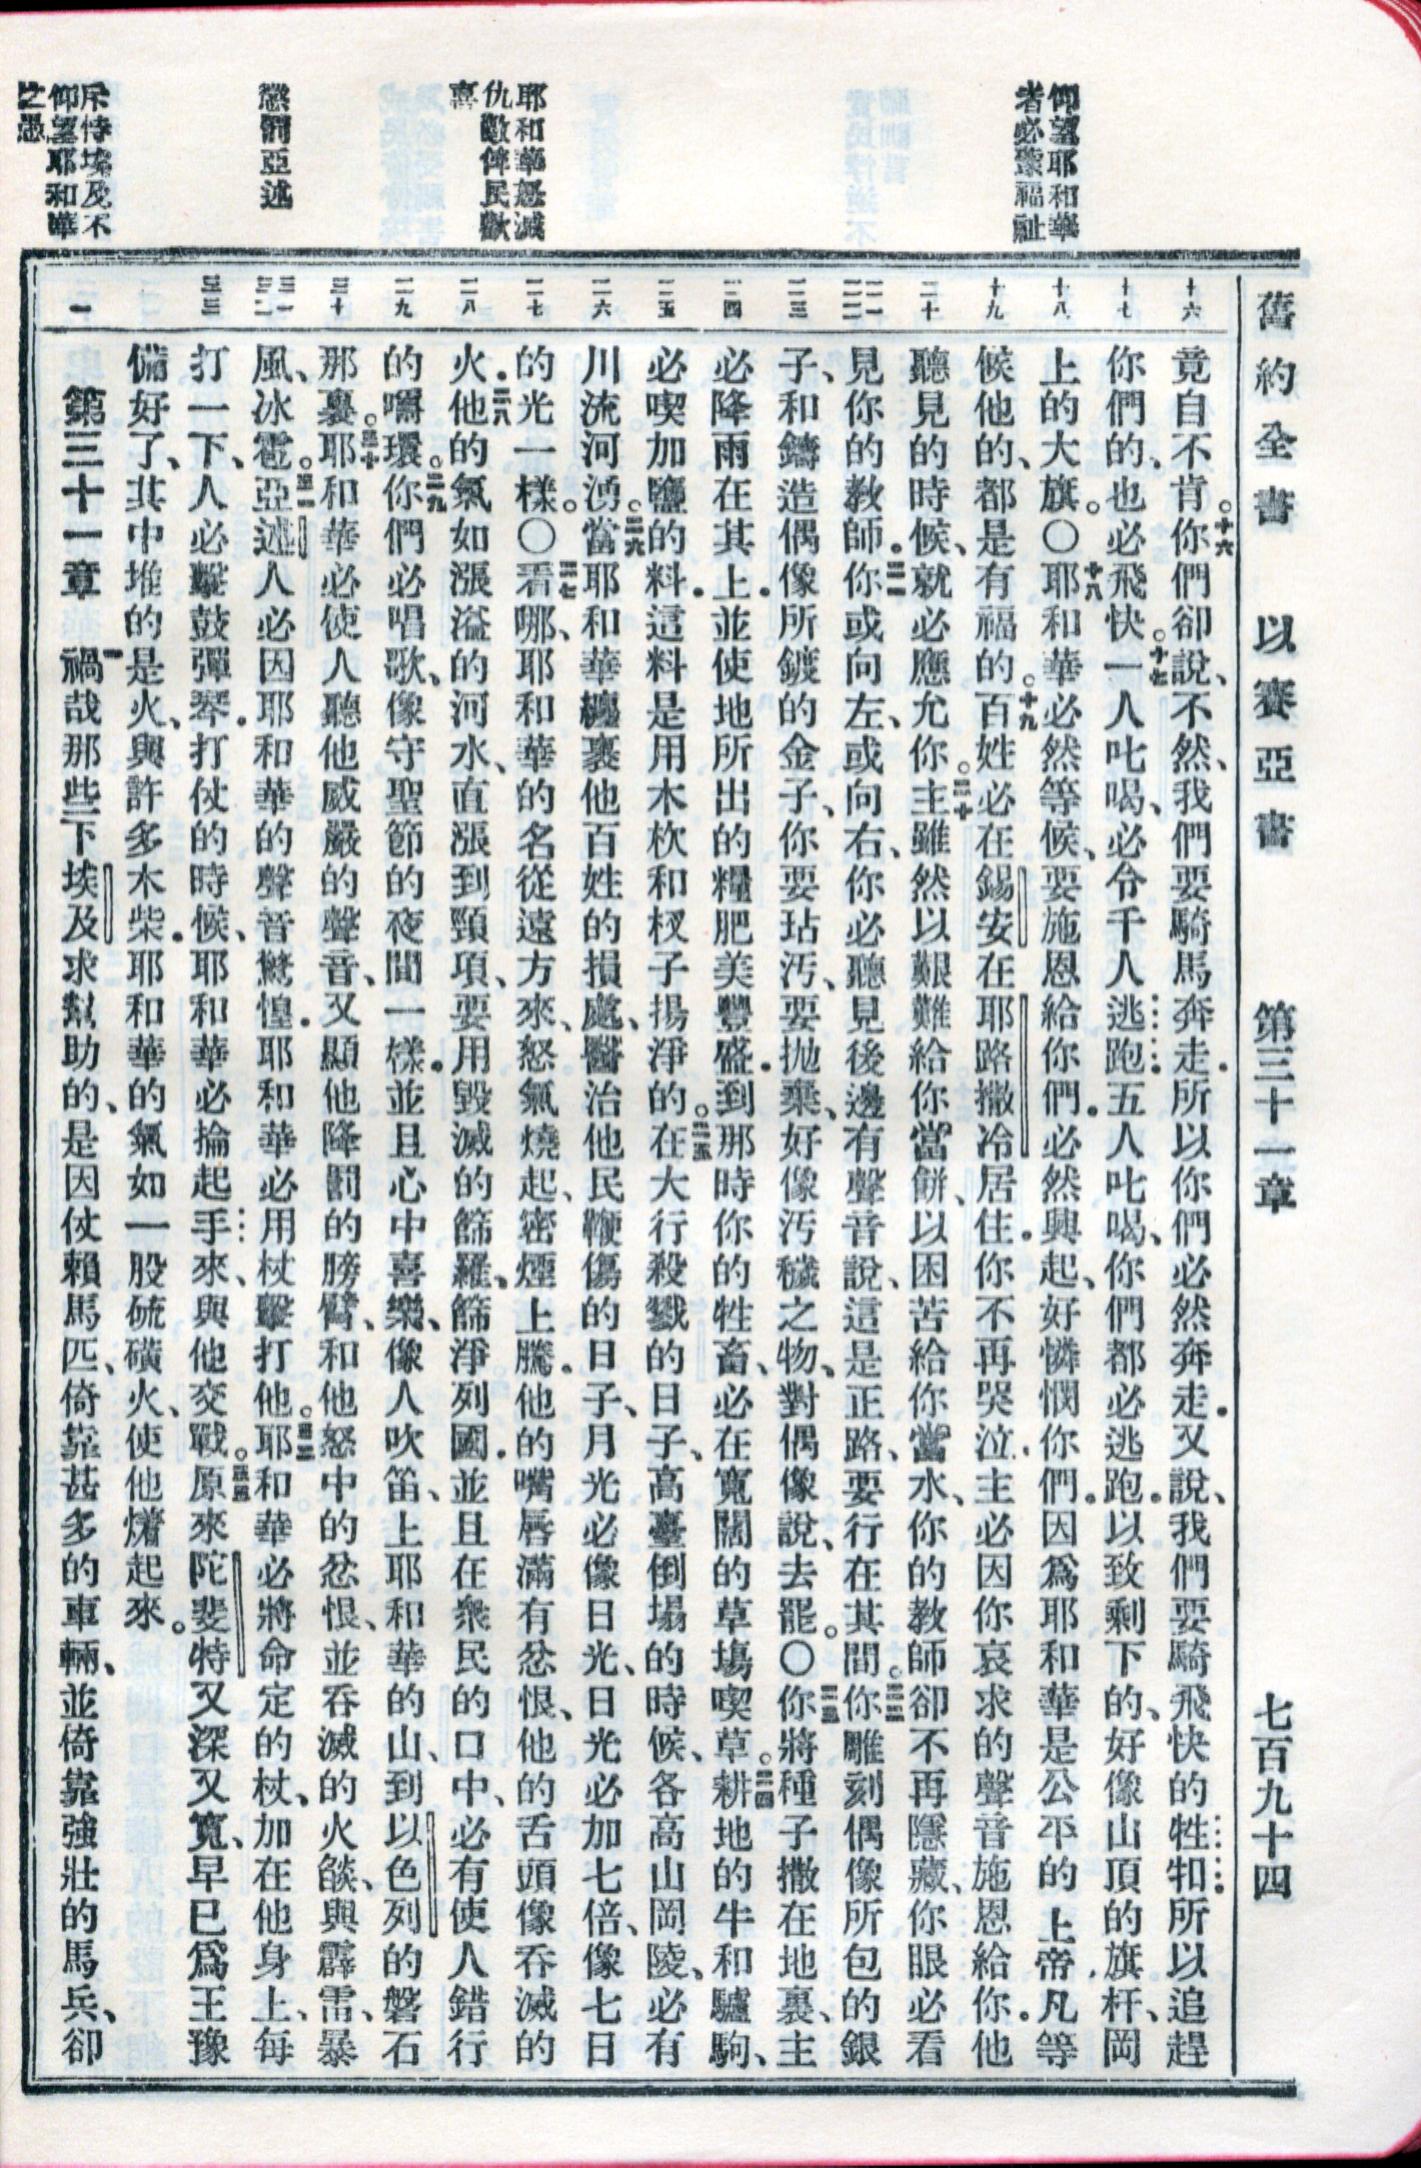 舊約全書 以賽亞書 第三十一章 七百九十四
仰望耶和華
者必蒙福祉
耶和華怒滅
仇敵俾民歡
喜
懲罰亞述
斥恃埃及不
仰望耶和華
之愚
十六
十七
十八
十九
二十
二一
二二
二三
二四
二五
二六
二七
二八
二九
三十
三一
三二
三三
一
竟自不肯。十六你們卻說、不然、我們要騎馬奔走．所以你們必然奔走．又說、我們要騎飛快的牲𤘘．所以追趕
你們的、也必飛快。十七一人叱喝、必令千人逃跑．五人叱喝、你們都必逃跑．以致剩下的、好像山頂的旗杆、岡
上的大旗。○十八耶和華必然等候、要施恩給你們．必然興起、好憐憫你們．因爲耶和華是公平的上帝．凡等
候他的、都是有福的。十九百姓必在錫安在耶路撒冷居住．你不再哭泣．主必因你哀求的聲音施恩給你．他
聽見的時候、就必應允你。二十主雖然以艱難給你當餅、以困苦給你當水、你的教師卻不再隱藏、你眼必看
見你的教師．二一你或向左、或向右、你必聽見後邊有聲音說、這是正路、要行在其間。二二你雕刻偶像所包的銀
子、和鑄造偶像所鍍的金子、你要玷汚、要抛棄、好像汚穢之物、對偶像說、去罷。○二三你將種子撒在地裏、主
必降雨在其上．並使地所出的糧肥美豐盛．到那時你的牲畜、必在寬闊的草塲喫草。二四耕地的牛和驢駒、
必喫加鹽的料．這料是用木杴和杈子揚淨的。二五在大行殺戮的日子、高臺倒塲的時候、各高山岡陵、必有
川流河湧。二六當耶和華纏裹他百姓的損處、醫治他民鞭傷的日子、月光必像日光、日光必加七倍、像七日
的光一樣。○二七看哪、耶和華的名從遠方來、怒氣燒起、密煙上騰．他的嘴唇滿有忿恨、他的舌頭像吞滅的
火．二八他的氣如漲溢的河水、直漲到頸項、要用毀滅的篩羅、篩淨列國．並且在衆民的口中、必有使人錯行
的嚼環。二九你們必唱歌、像守聖節的夜間一樣．並且心中喜樂、像人吹笛、上耶和華的山、到以色列的磐石
那裏。三十耶和華必使人聽他威嚴的聲音、又顯他降罰的膀臂、和他怒中的忿恨、並吞滅的火燄、與霹雷、暴
風、冰雹。三一亞述人必因耶和華的聲音驚惶．耶和華必用杖擊打他。三二耶和華必將命定的杖、加在他身上、每
打一下、人必擊鼓彈琴．打仗的時候、耶和華必掄起手來、與他交戰。三三原來陀斐特又深又寬、早已爲王豫
備好了、其中堆的是火、與許多木柴．耶和華的氣如一股硫磺火、使他燃着起來。
第三十一章 一禍哉那些下埃及求幫助的、是因仗賴馬匹、倚靠甚多的車輛、並倚靠強壯的馬兵、卻